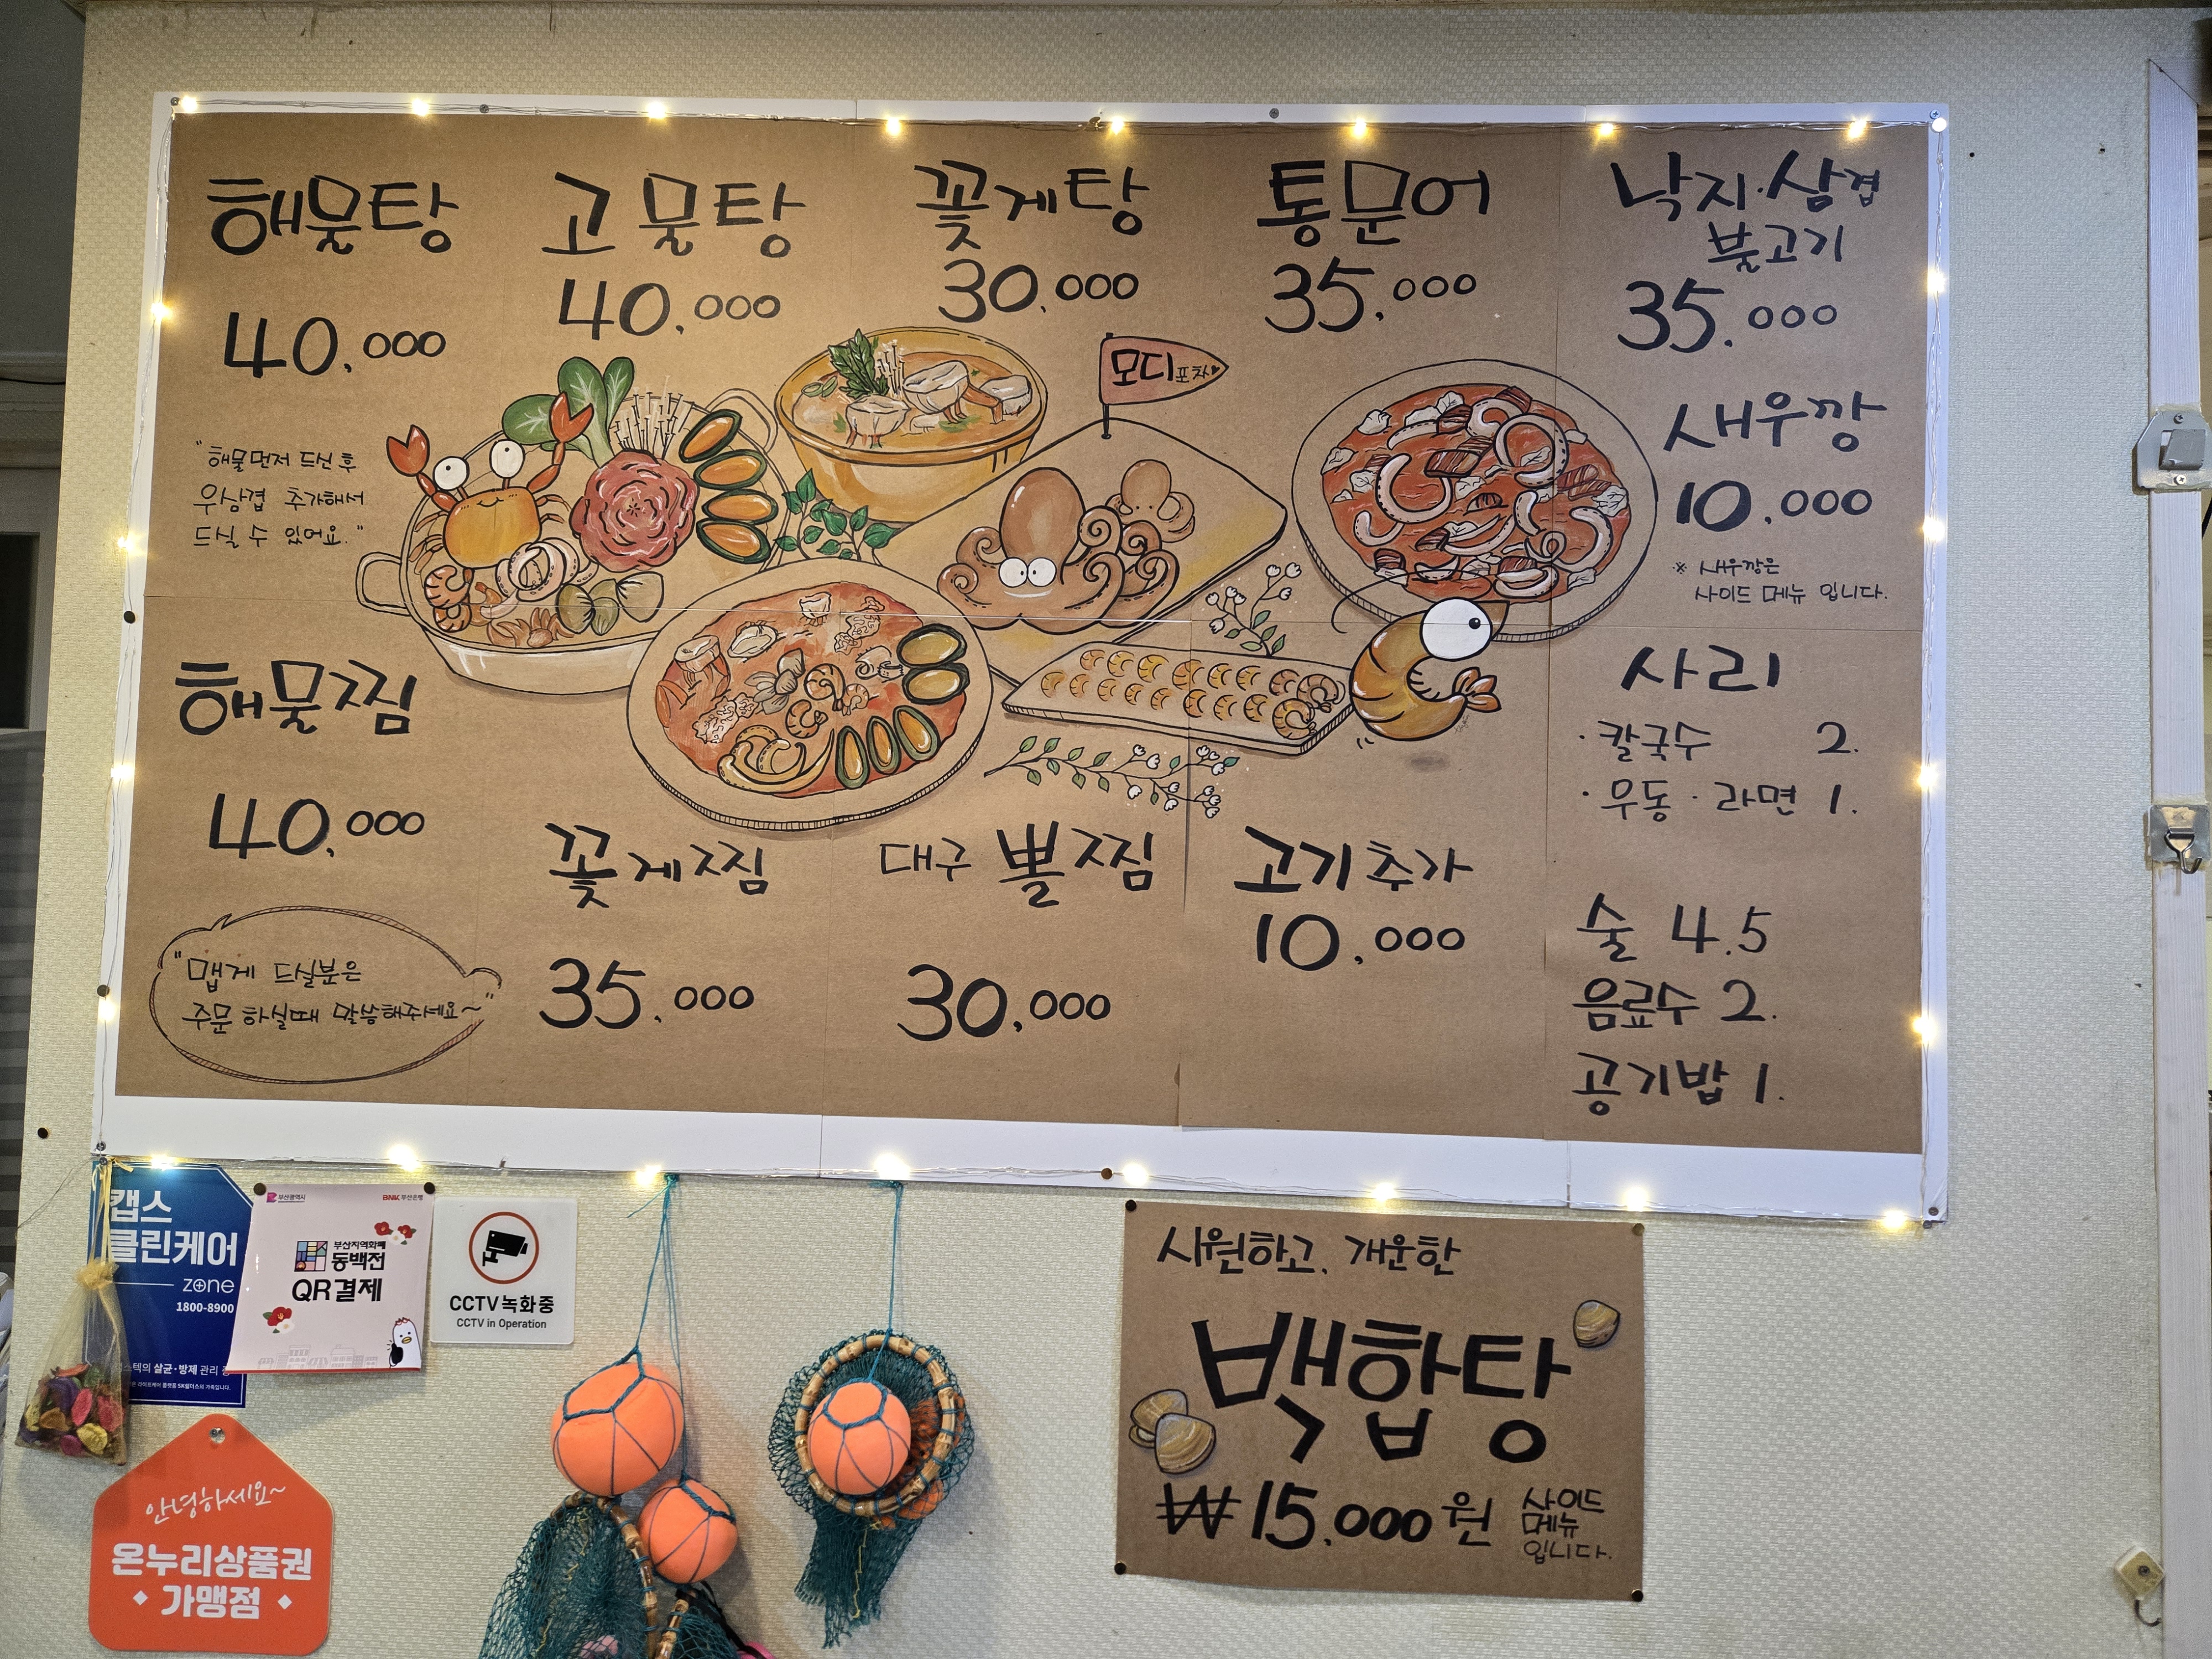 해물탕
40.000
"해물먼저 드신 후
우삼겹 추가해서
드실 수 있어요."
고물탕
40.000
꽃게탕
30.000
통문어
35.000
낙지·삼겹
불고기
35.000
모디포차
새우깡
10.000
※ 새우깡은
사이드 메뉴 입니다.
해물찜
40.000
"맵게 드실분은
주문 하실때 말씀해주세요~"
꽃게찜
35.000
대구 뽈찜
30.000
고기추가
10.000
사리
· 칼국수 2.
· 우동 · 라면 1.
술 4.5
음료수 2.
공기밥 1.
캡스
클린케어
zone
1800-8900
살균·방제 관리
부산광역시
BNK 부산은행
부산지역화폐
동백전
QR결제
CCTV 녹화중
CCTV in Operation
안녕하세요~
온누리상품권
가맹점
시원하고, 개운한
백합탕
₩15.000원
사이드
메뉴
입니다.